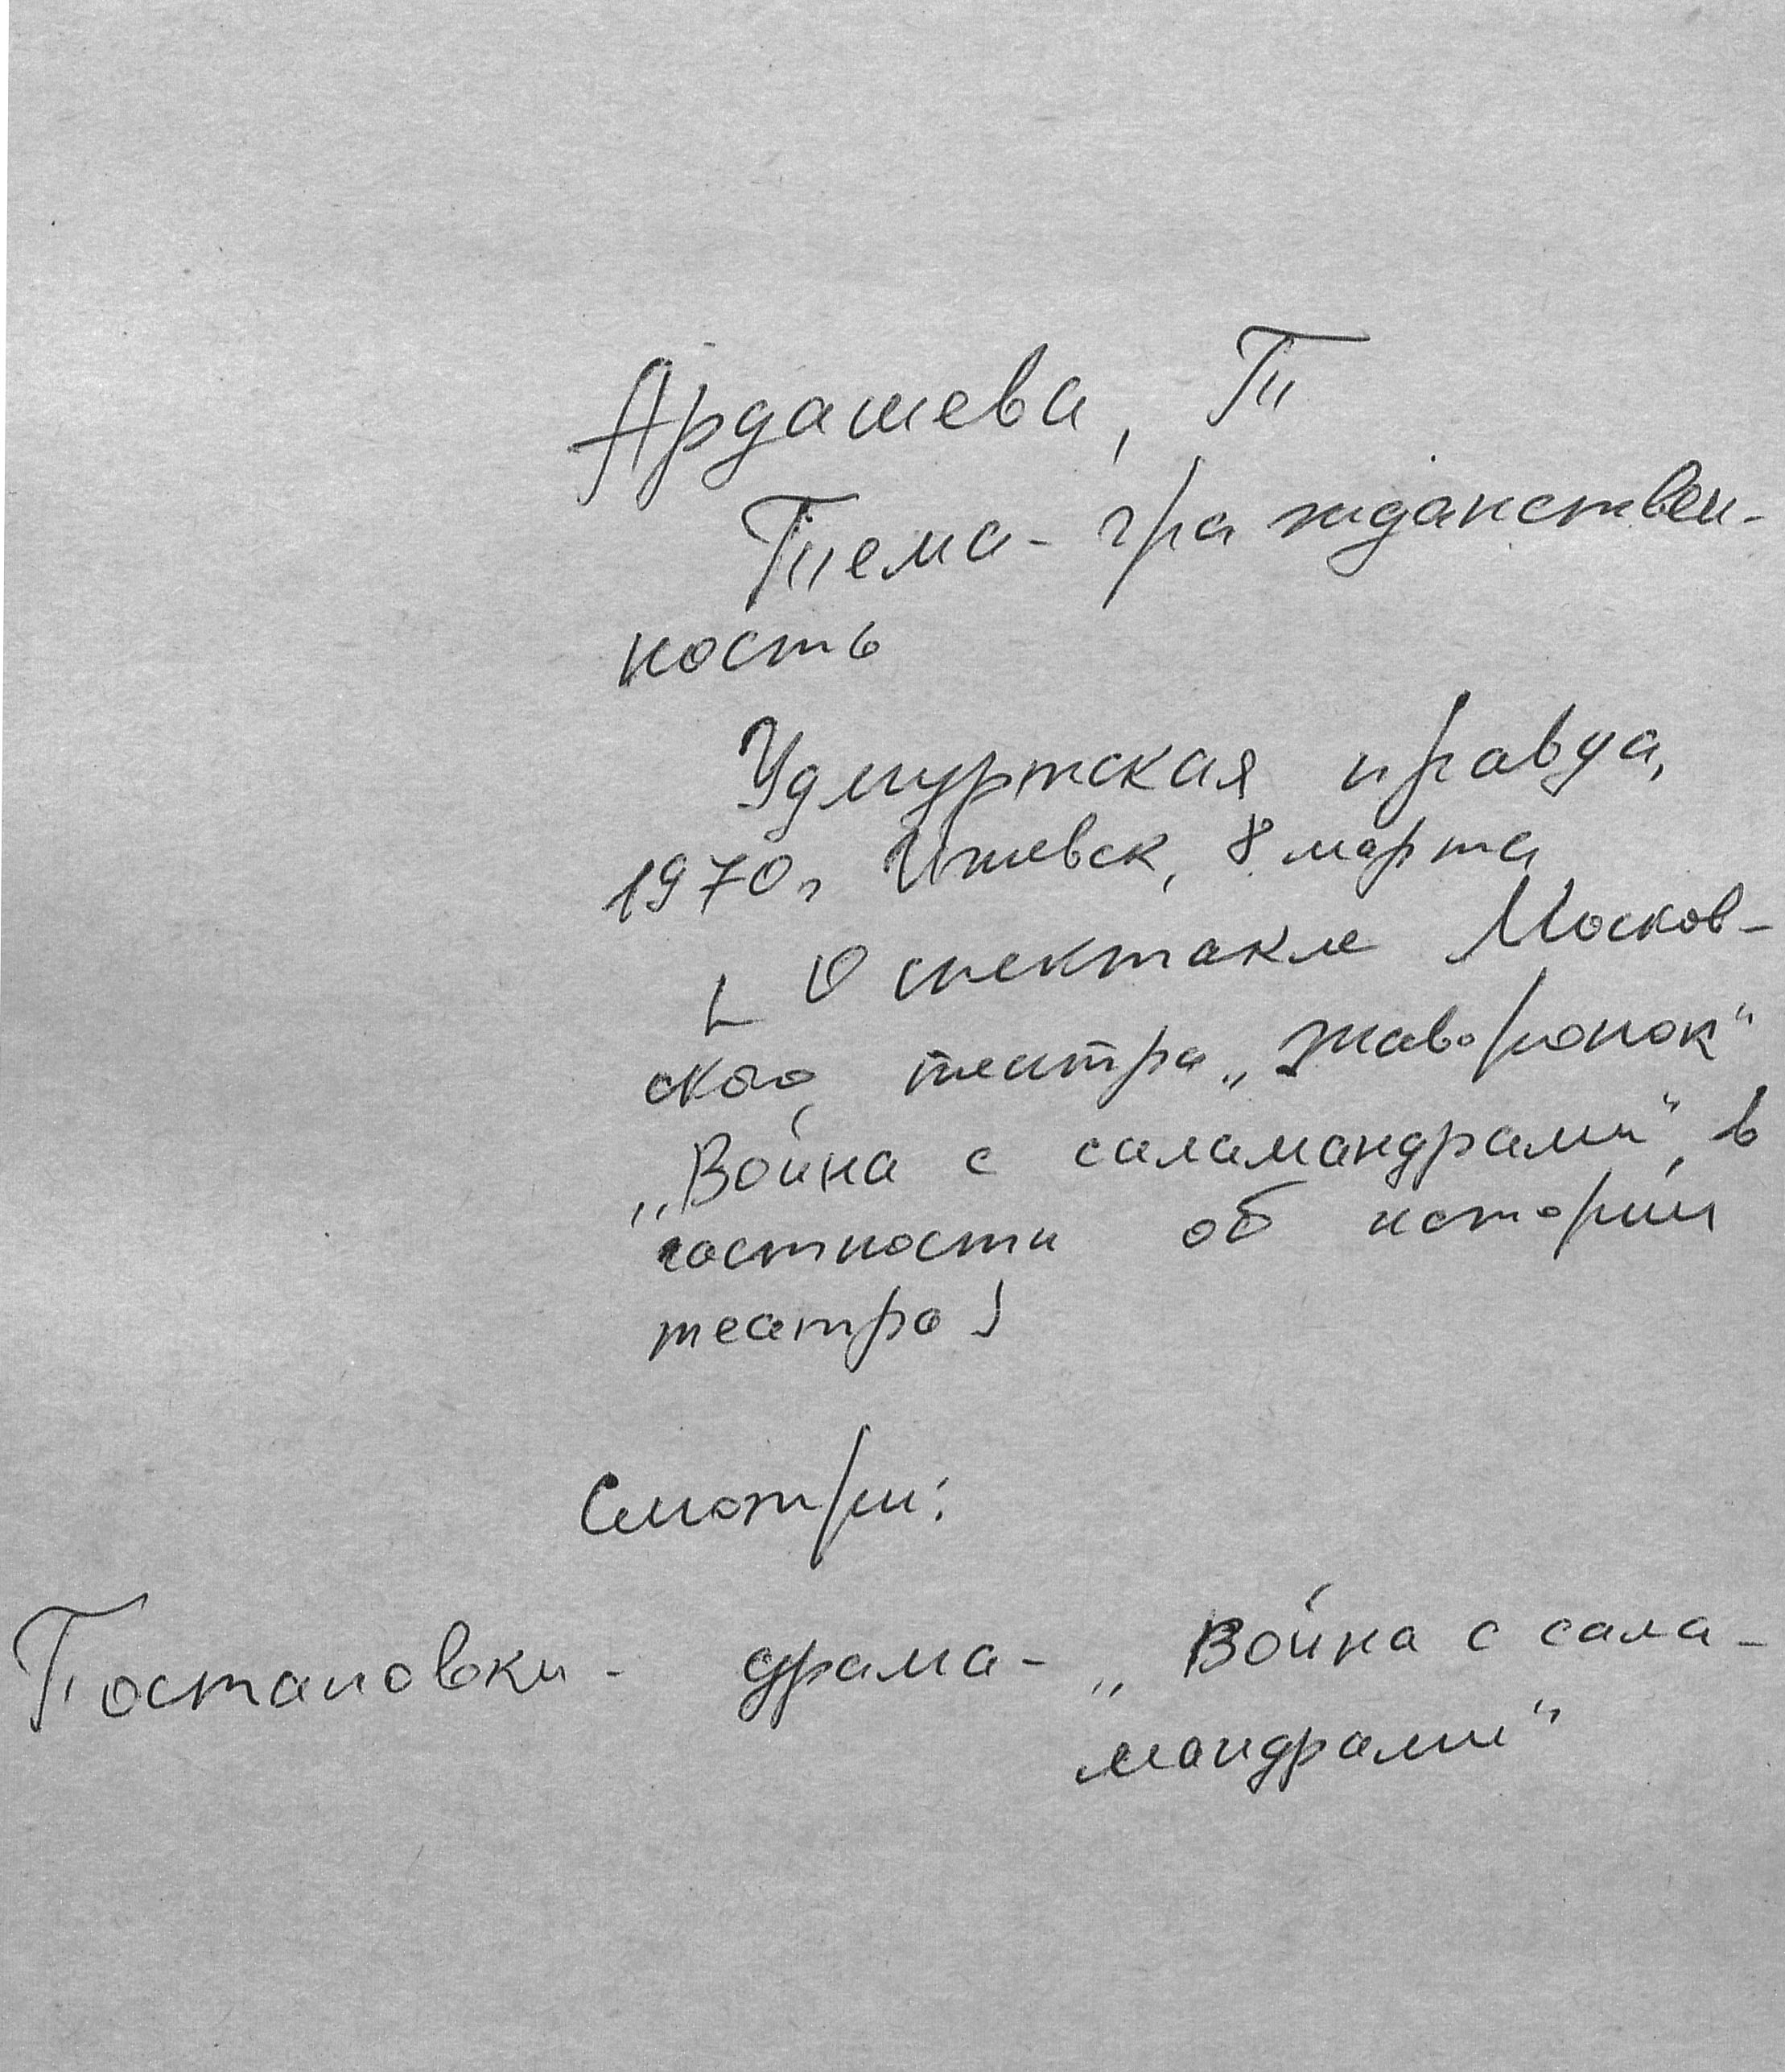 Ардашева, Т
Тема - гражданствен-
ность
Удмуртская правда,
1970, Ижевск, 8 марта
[ О спектакле Москов-
ского театра „Жаворонок“
„Война с саламандрами“, в
частности об истории
театра ]
Смотри:
Постановки - драма - „Война с сала-
мандрами“